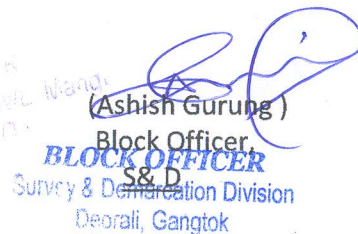 (Ashish Gurung )
Block Officer,
BLOCK OFFICER
S& D
Survey & Demarcation Division
Deorali, Gangtok